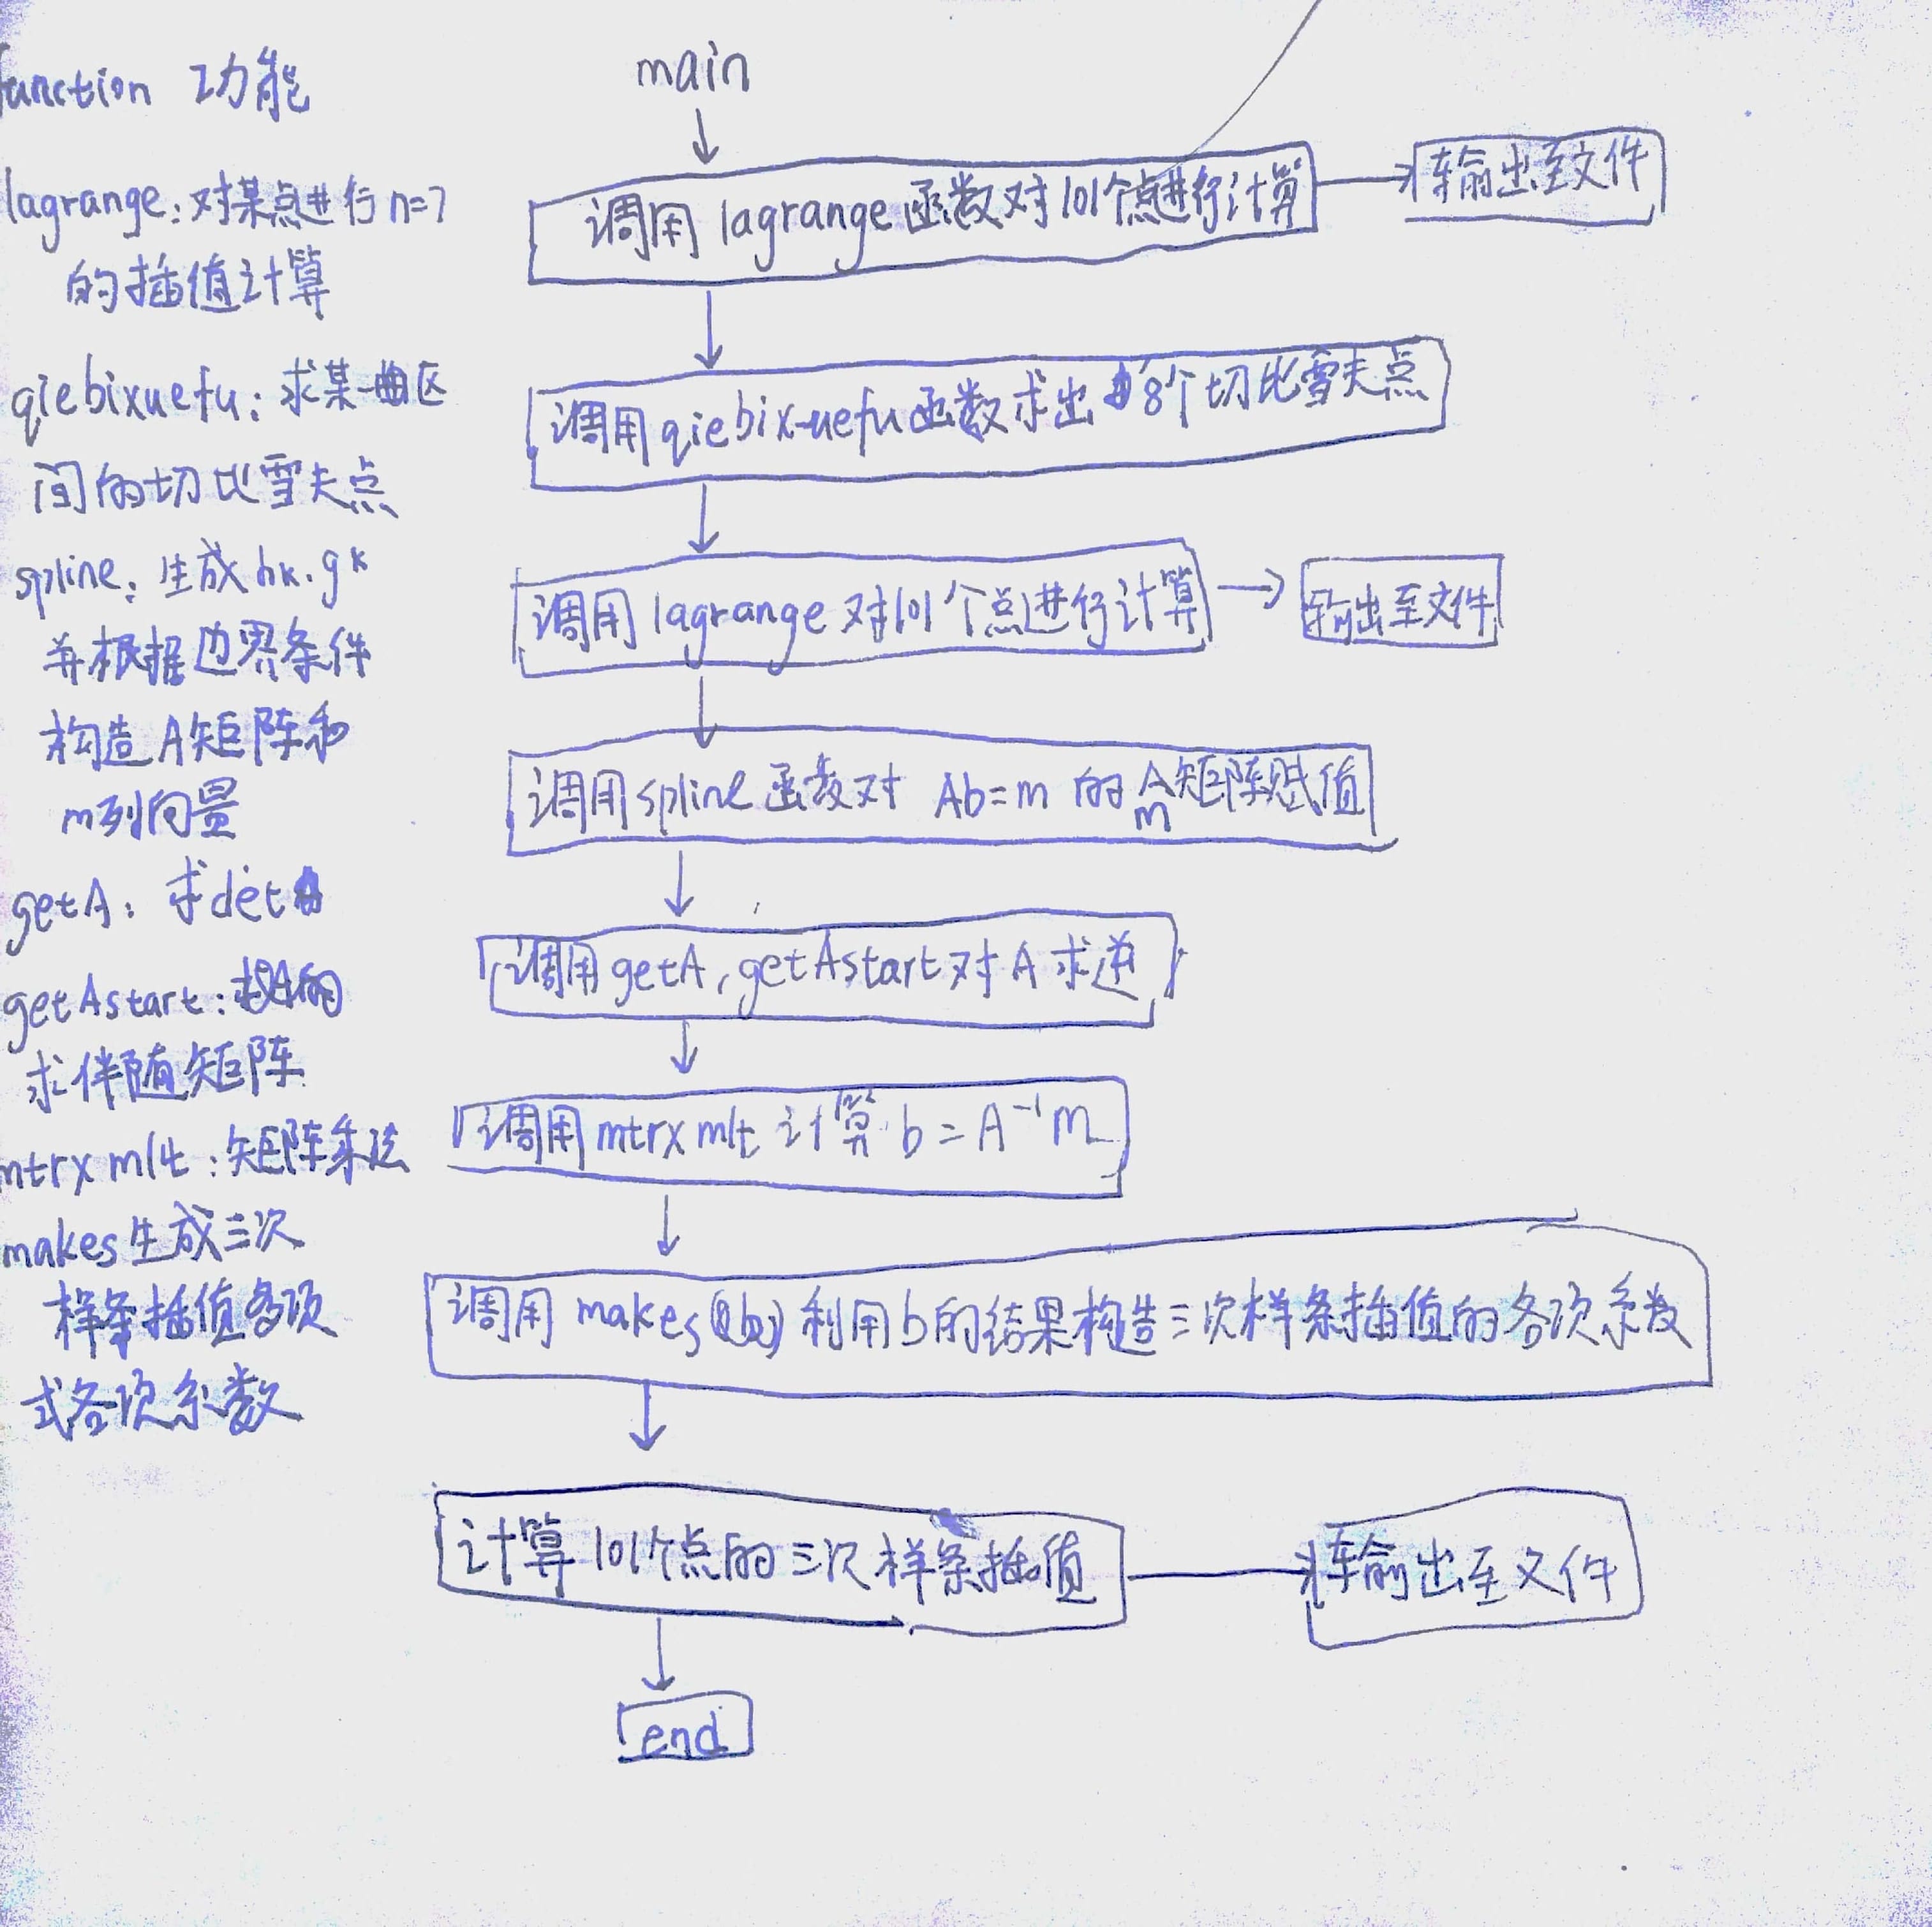 function 功能
lagrange：对某点进行 n=7
的插值计算
qiebixuefu：求某一区
间的切比雪夫点
spline：生成 hk. gk
并根据边界条件
构造 A矩阵和
m列向量
getA：求det
getAstart：
求伴随矩阵
mtrx mlt：矩阵乘法
makes 生成三次
样条插值多项
式各项系数
main
调用 lagrange 函数对101个点进行计算
输出至文件
调用 qiebixuefu 函数求出 8个切比雪夫点
调用 lagrange 对101个点进行计算
输出至文件
调用 spline 函数对 Ab=m 的 A m 矩阵赋值
调用 getA, getAstart 对 A 求逆
调用 mtrx mlt 计算 b = A⁻¹m
调用 makes 利用b的结果构造三次样条插值的各项系数
计算 101个点的三次样条插值
输出至文件
end